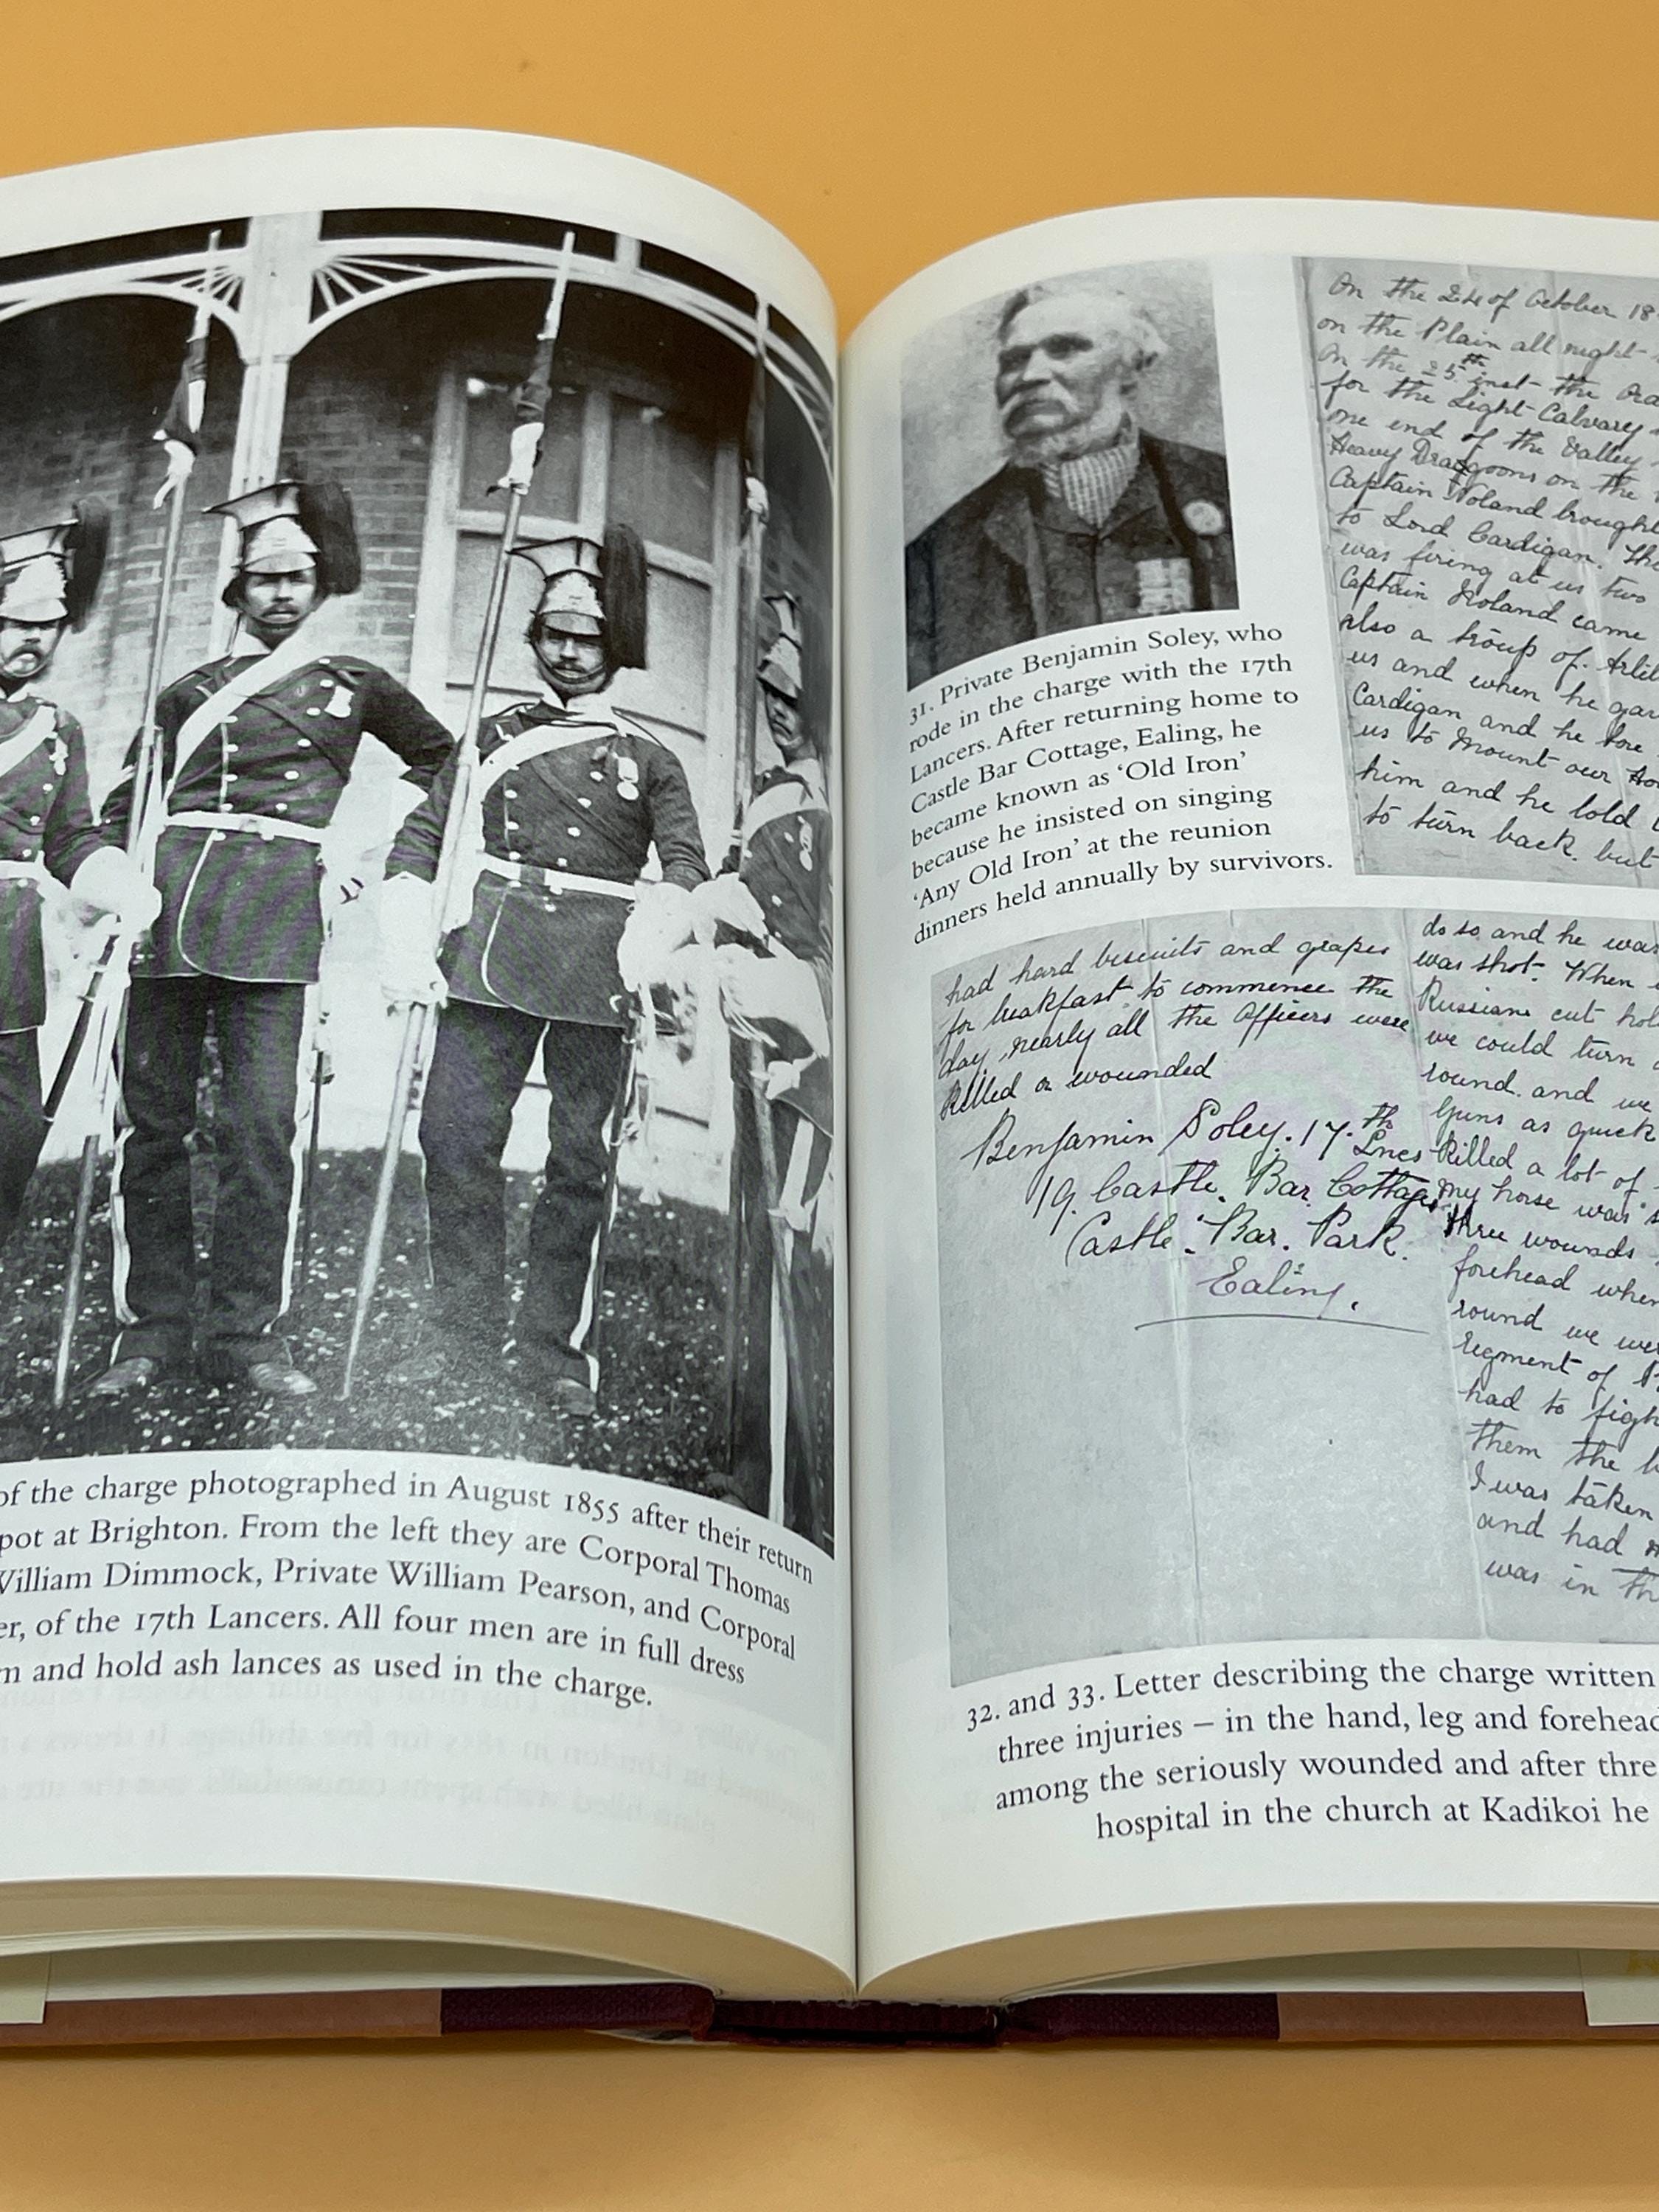 of the charge photographed in August 1855 after their return
pot at Brighton. From the left they are Corporal Thomas
William Dimmock, Private William Pearson, and Corporal
er, of the 17th Lancers. All four men are in full dress
m and hold ash lances as used in the charge.
31. Private Benjamin Soley, who
rode in the charge with the 17th
Lancers. After returning home to
Castle Bar Cottage, Ealing, he
became known as ‘Old Iron’
because he insisted on singing
‘Any Old Iron’ at the reunion
dinners held annually by survivors.
On the 24 of October 18
on the Plain all night
On the 25th inst the
for the Light Calvary
one end of the Valley
Heavy Dragoons on the
Captain Noland brought
to Lord Cardigan. The
was firing at us two
Captain Noland came
also a troup of Artil
us and when he gav
Cardigan and he
us to Mount our
him and he told
to turn back. but
had hard biscuits and grapes
for breakfast to commence the
day, nearly all the Officers were
Killed or wounded
Benjamin Soley. 17th Lncs
19. Castle. Bar Cottages
Castle. Bar. Park.
Ealing.
do so and he was
was shot. When
Russians cut
we could turn
round. and we
Guns as quick
Killed a lot of
My horse was
three wounds
forehead when
round we wer
regment of
had to figh
them the
I was taken
and had
was in th
32. and 33. Letter describing the charge written
three injuries – in the hand, leg and forehead
among the seriously wounded and after thre
hospital in the church at Kadikoi he